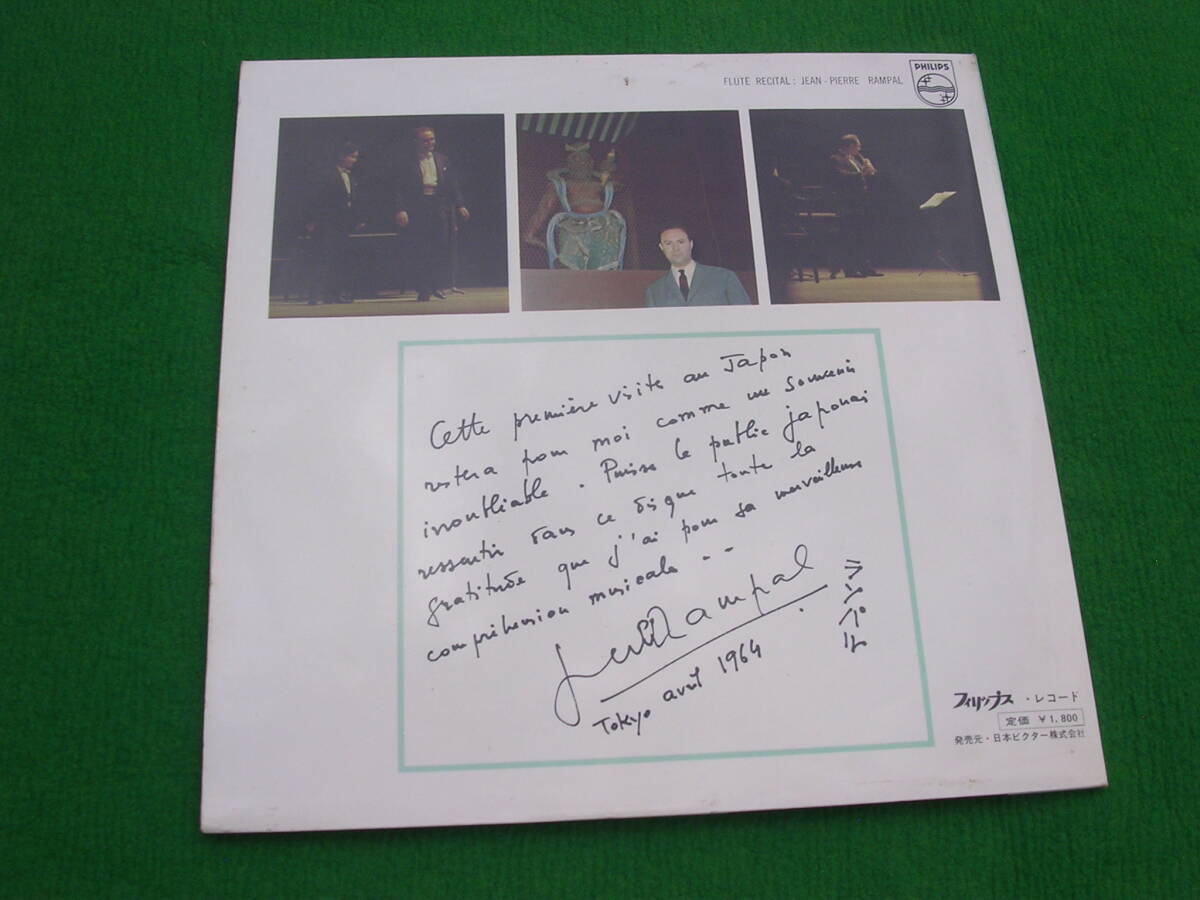 FLUTE RECITAL: JEAN-PIERRE RAMPAL
PHILIPS
Cette première visite au Japon
restera pour moi comme un souvenir
inoubliable. Puisse le public japonais
ressentir dans ce disque toute la
gratitude que j'ai pour sa merveilleuse
compréhension musicale..
Rampal
Tokyo avril 1964
ランパル
フィリップス・レコード
定価 ¥1,800
発売元・日本ビクター株式会社